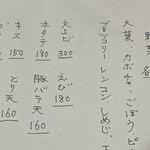 野菜 各
大葉、カボチャ、ごぼう、ピ
ブロッコリー、レンコン、しめじ、
大えび 300
えび 180
ホタテ 180
豚バラ天 160
キス 150
とり天 160